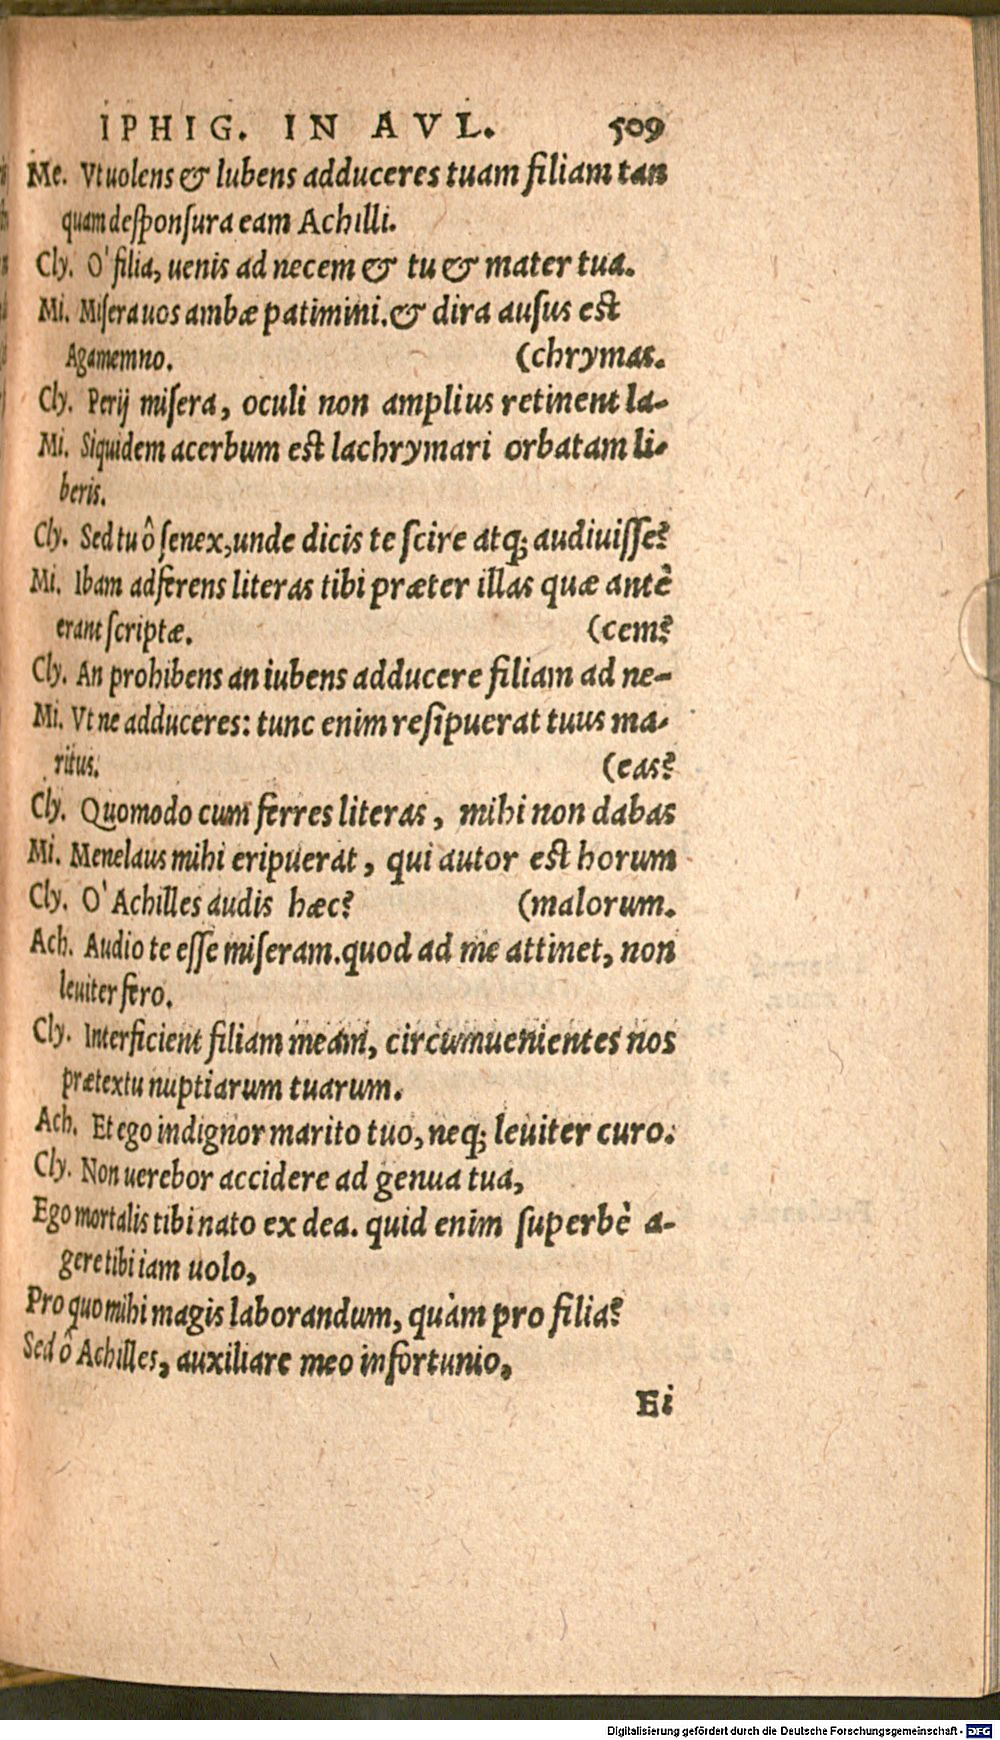 IPHIG. IN AVL. 509
Me. Vt uolens & lubens adduceres tuam filiam tan
quam desponsura eam Achilli.
Cly. O' filia, uenis ad necem & tu & mater tua.
Mi. Misera uos ambæ patimini. & dira ausus est
Agamemno. (chrymas.
Cly. Perij misera, oculi non amplius retinent la-
Mi. Siquidem acerbum est lachrymari orbatam li-
beris.
Cly. Sed tu ô senex, unde dicis te scire atq; audiuisse?
Mi. Ibam adferens literas tibi præter illas quæ antè
erant scriptæ. (cem?
Cly. An prohibens an iubens adducere filiam ad ne-
Mi. Vt ne adduceres: tunc enim resipuerat tuus ma-
ritus. (eas?
Cly. Quomodo cum ferres literas, mihi non dabas
Mi. Menelaus mihi eripuerat, qui autor est horum
Cly. O' Achilles audis hæc? (malorum.
Ach. Audio te esse miseram. quod ad me attinet, non
leuiter fero.
Cly. Interficient filiam meam, circumuenientes nos
prætextu nuptiarum tuarum.
Ach. Et ego indignor marito tuo, neq; leuiter curo.
Cly. Non uerebor accidere ad genua tua,
Ego mortalis tibi nato ex dea. quid enim superbè a-
gere tibi iam uolo,
Pro quo mihi magis laborandum, quàm pro filia?
Sed ô Achilles, auxiliare meo infortunio,
Ei
Digitalisierung gefördert durch die Deutsche Forschungsgemeinschaft - DFG